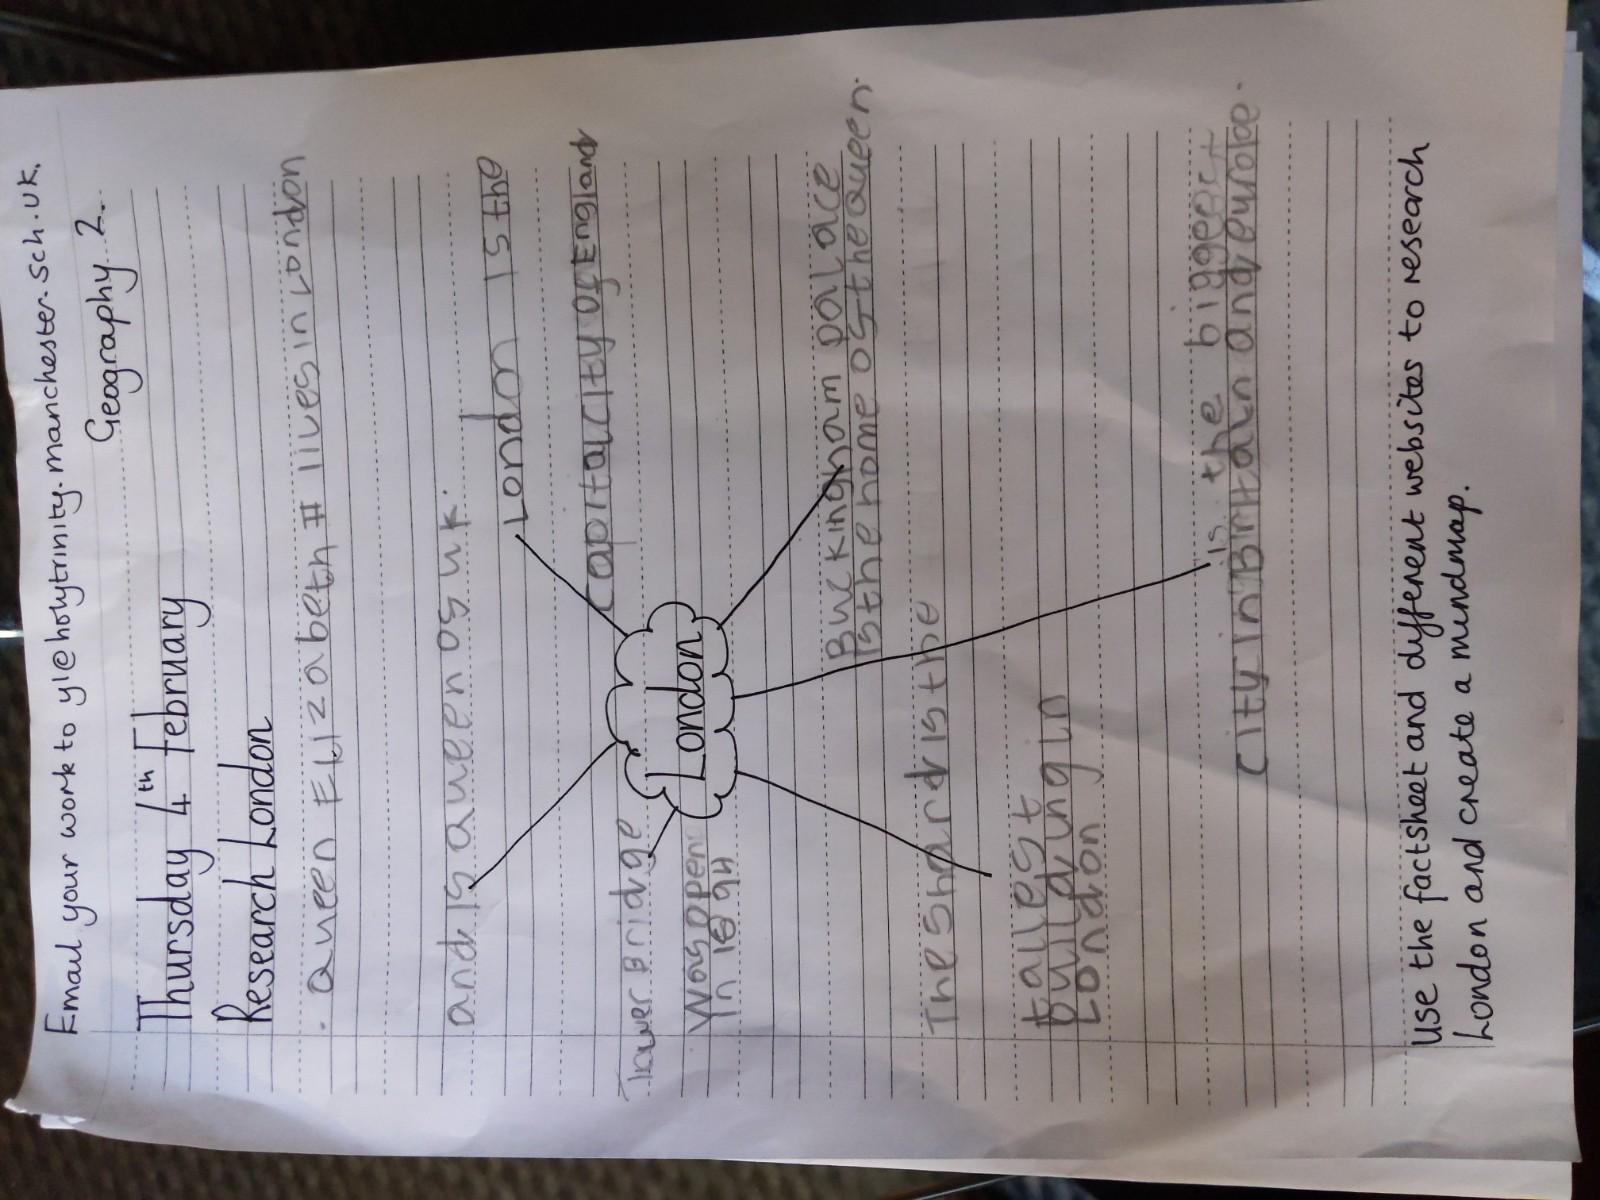 Email your work to y1@holytrinity.manchester.sch.uk.
Geography 2.
Thursday 4th February
Research London
. Queen Elizabeth II lives in London
and is queen of uk.
London is the
capital city of England
Tower Bridge
Was open
in 1894
London
Buckingham palace
is the home of the queen.
The Shard is the
tallest
building in
London
is the biggest
city in Britain and europe.
Use the factsheet and different websites to research
London and create a mindmap.